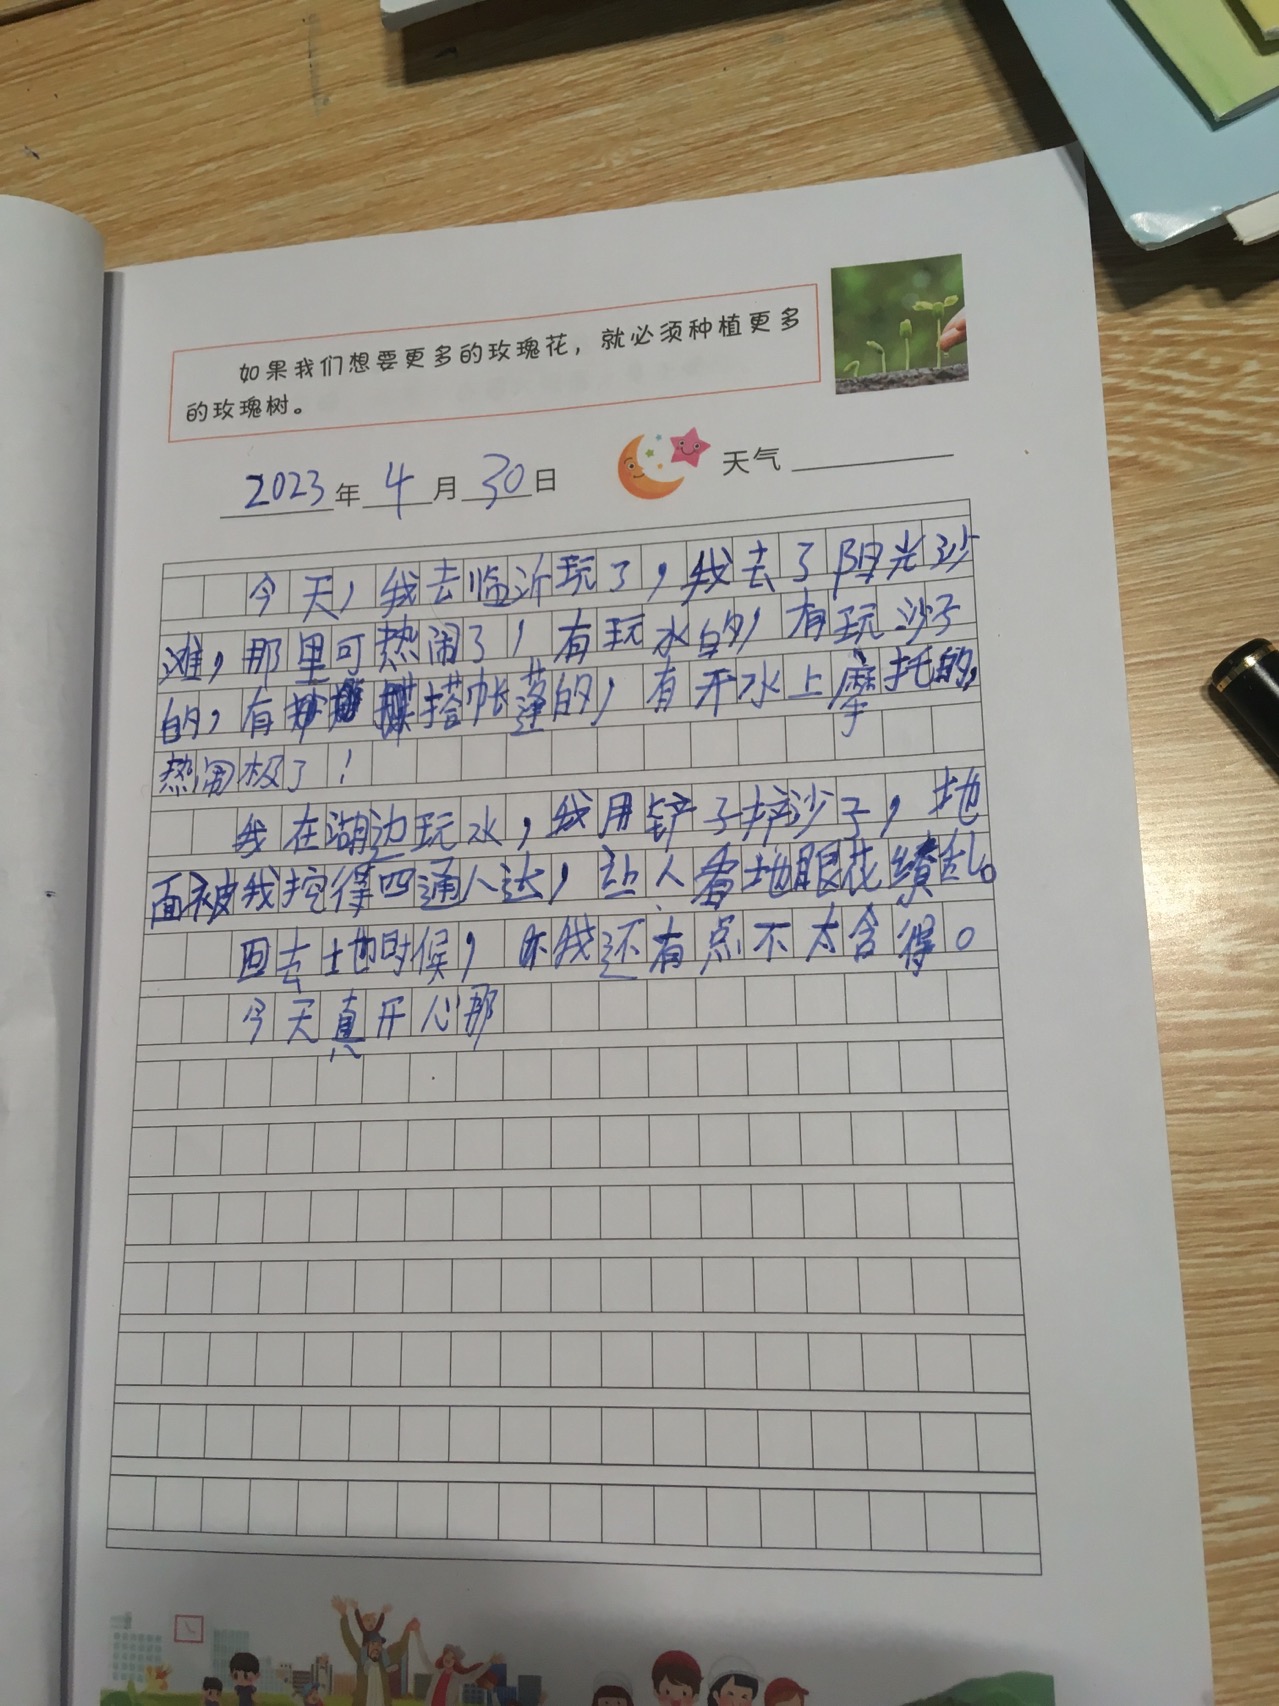 如果我们想要更多的玫瑰花，就必须种植更多
的玫瑰树。
2023年4月30日 天气
今天，我去临沂玩了，我去了阳光沙
滩，那里可热闹了，有玩水的，有玩沙子
的，有搭帐篷的，有开水上摩托的，
热闹极了！
我在湖边玩水，我用铲子挖沙子，地
面被我挖得四通八达，让人看地眼花缭乱。
回去地时候，我还有点不太舍得。
今天真开心那